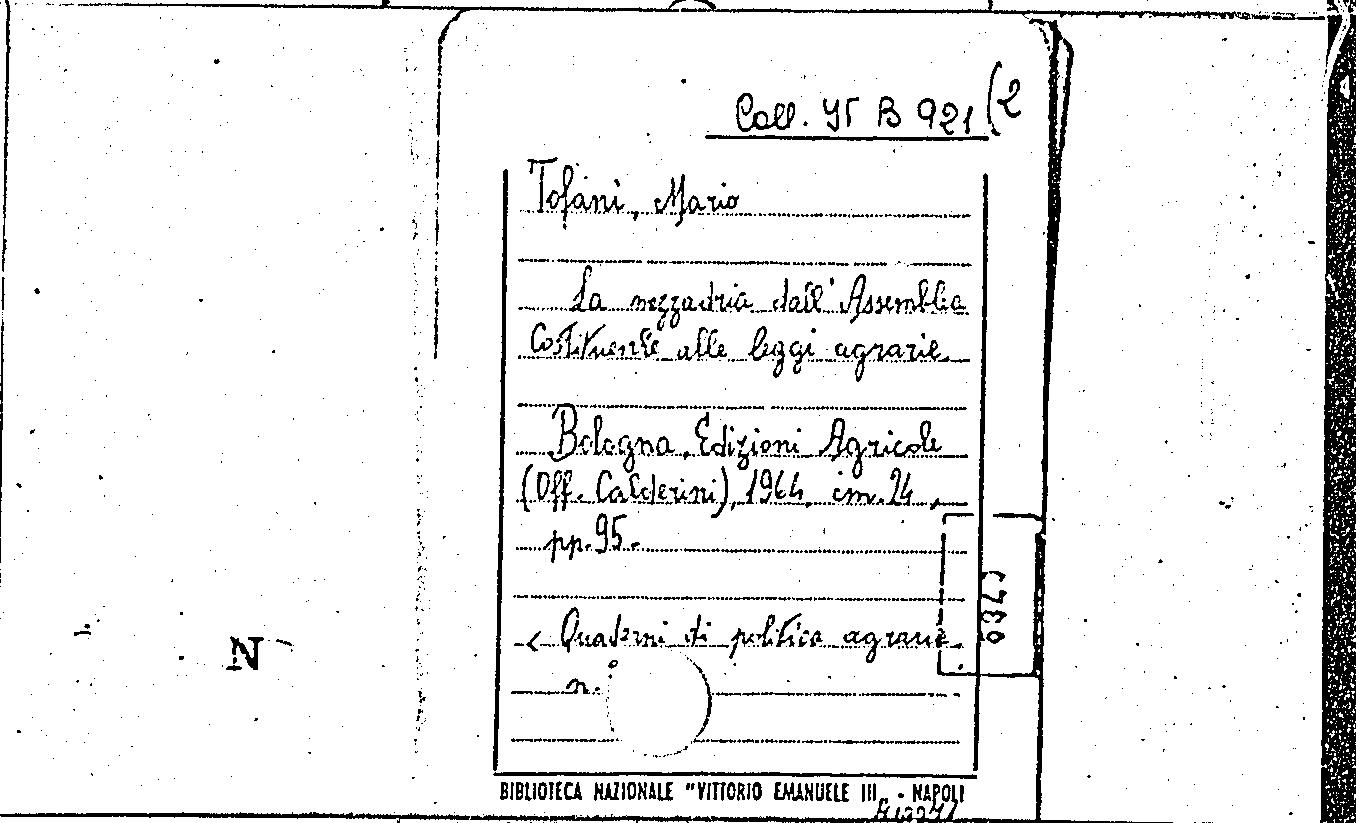 Coll. YΓ B 921 (2
Tofani, Mario
La mezzadria dall'Assemblea
Costituente alle leggi agrarie.
Bologna, Edizioni Agricole
(Off. Calderini), 1964, cm. 24,
pp. 95.
< Quaderni di politica agraria.
n.
N
BIBLIOTECA NAZIONALE "VITTORIO EMANUELE III„ - NAPOLI